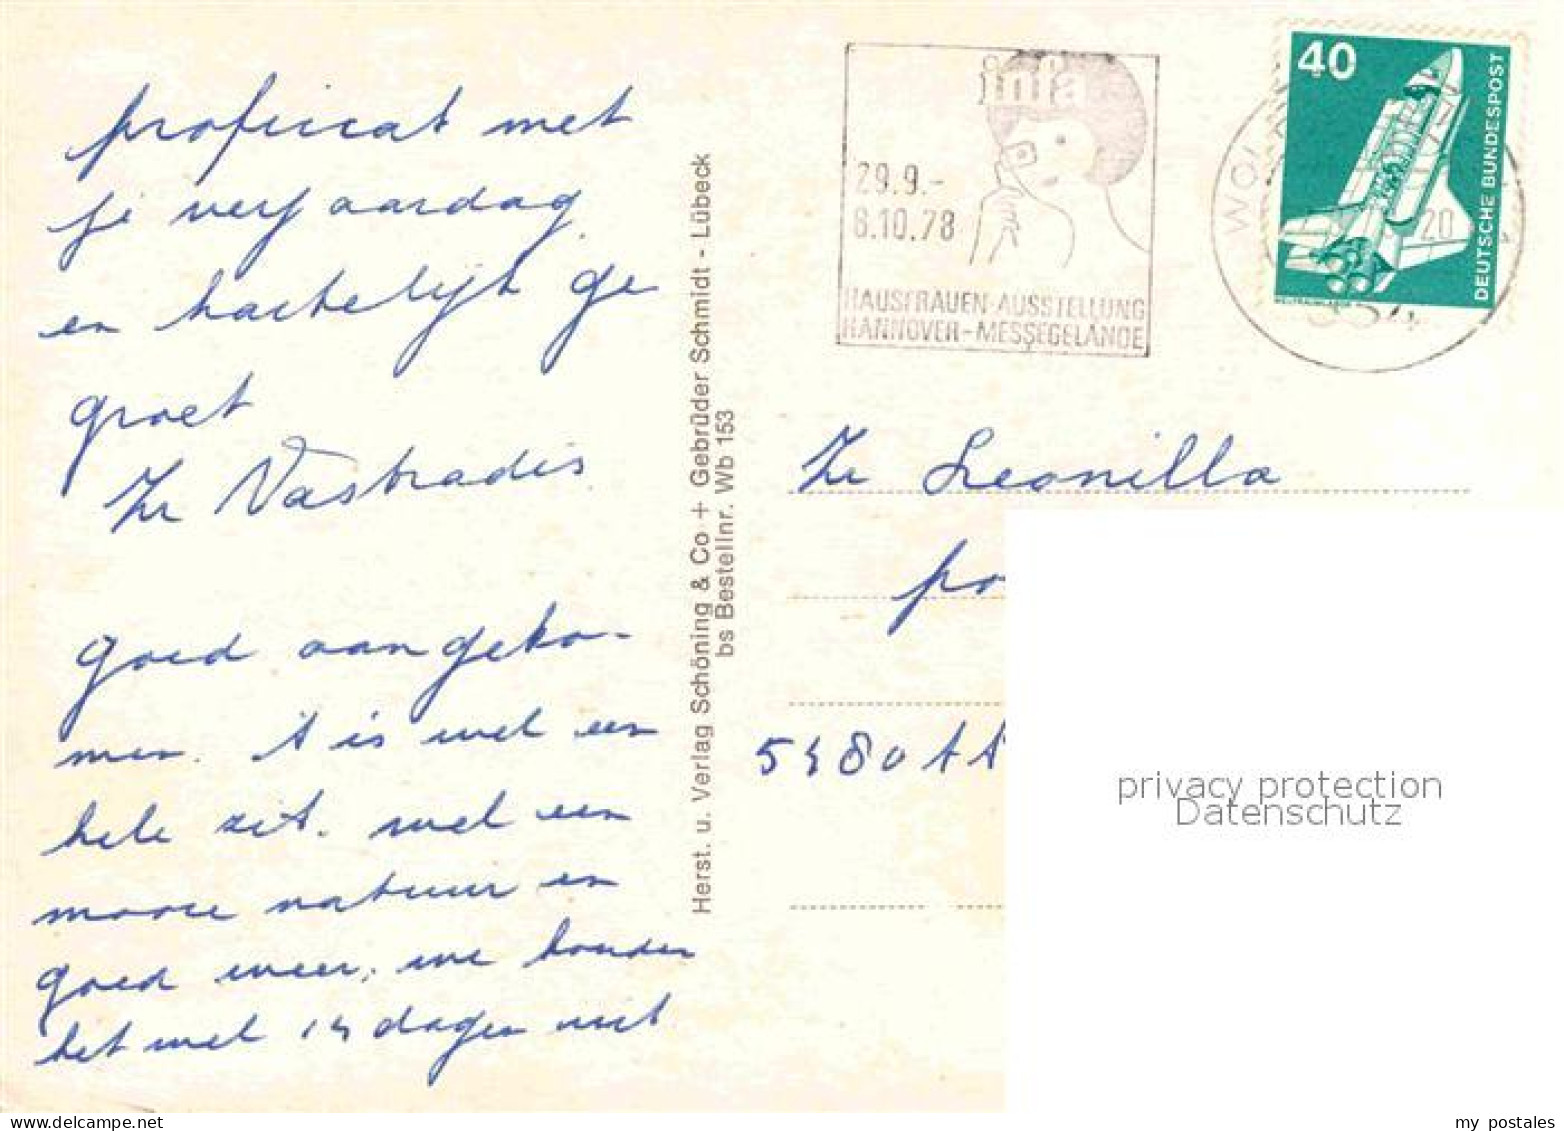 proficiat met
je verjaardag.
en hartelijk ge
groet
Zr Vastradis.
goed aangeko-
men. 't is wel een
hele zit. wel een
mooie natuur en
goed weer, we houden
het wel 14 dagen uit
Herst. u. Verlag Schöning & Co + Gebrüder Schmidt - Lübeck
bs Bestellnr. Wb 153
infa
29.9.-
8.10.78
HAUSFRAUEN-AUSSTELLUNG
HANNOVER-MESSEGELÄNDE
40
DEUTSCHE BUNDESPOST
WELTRAUMLABOR
20
334
Zr Leonilla
5480 AA
privacy protection
Datenschutz
my postales